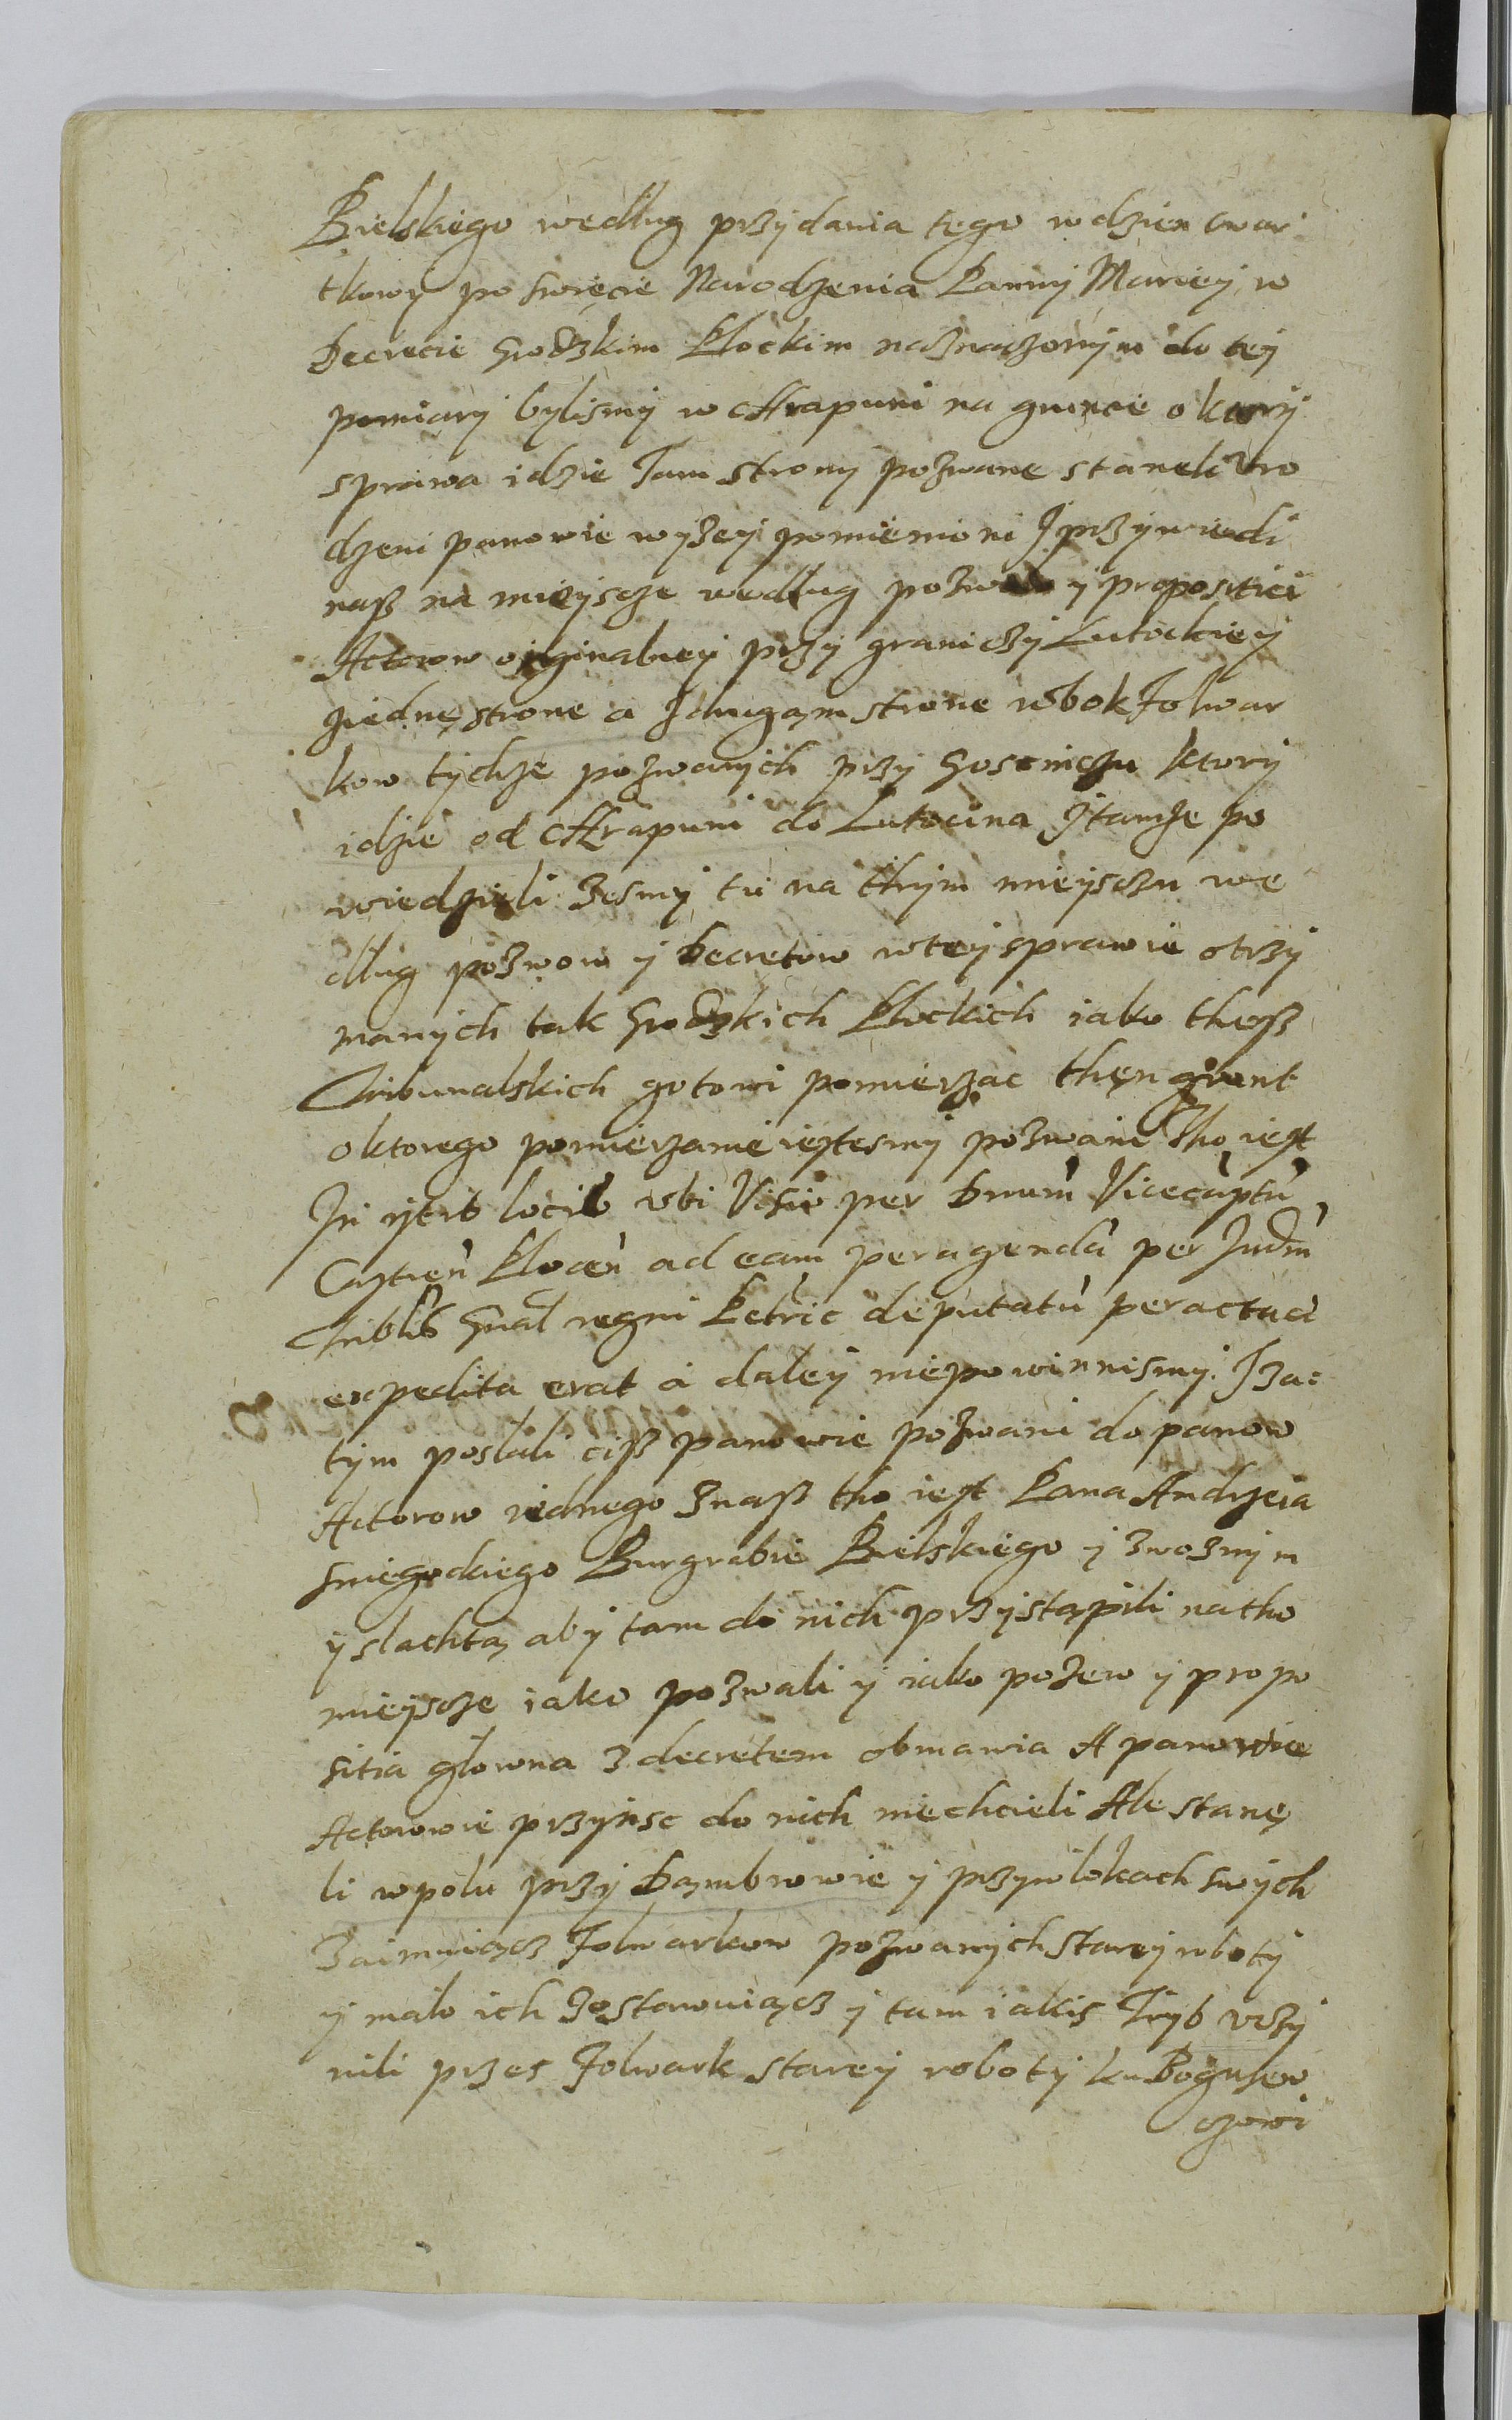 Bielskiego według przydania tego w dzien cwar
tkowy po swięcie Narodzenia Panny Mariey w
Decrecie Grodzkim Płockim naznaczonym do tey
pomiary bylismy w Chrapuni na gruncie o ktory
sprawa idzie Tam strony pozwane staneli Vro
dzeni panowie wyzey pomienioni J przywiedli
nasz na mieyscze według pozwu y propositiei
Actorow originalney przy graniczy Lutockiey
z iednę strone a z drugąm strone w bok folwar
kow tychze pozwanych przy Gosciniczu ktory
idzie od Chrapuni do Lutocina J tamze po
wiedzieli zesmy tu na thym mieysczu we
dług pozwow y Decretow w tey sprawie otrzy
manych tak Grodzkich Płockich iako thesz
Tribunalskich gotowi pomierzac then grunt
o ktorego pomierzanie iestesmy pozwani Tho iest
In ijtis locis vbi Visio per Dnum Vicecaptu
Castren Plocen ad eam peragenda per Judm
Triblis Gnal regni Petric deputatu peracta et
expedita erat a daley niepowinnismy. J za=
tym posłali cisz panowie pozwani do panow
Actorow iednego znasz tho iest Pana Andrzeia
Sniegockiego Burgrabie Bielskiego y z woznym
y slachtą aby tam do nich przystąpili na tho
mieyscze iako pozwali y iako pozew y propo
sitia głowna z decretem obmawia A panowie
Actorowie przyisc do nich niechcieli Ale stanę
li w polu przy Dąmbrowie y przywłokach swych
Zaimuiącz folwarkow pozwanych starey roboty
y mało ich zostawuiącz y tam iakis Tryb vczy
nili przes folwark starey roboty ku Bogusew
czowi